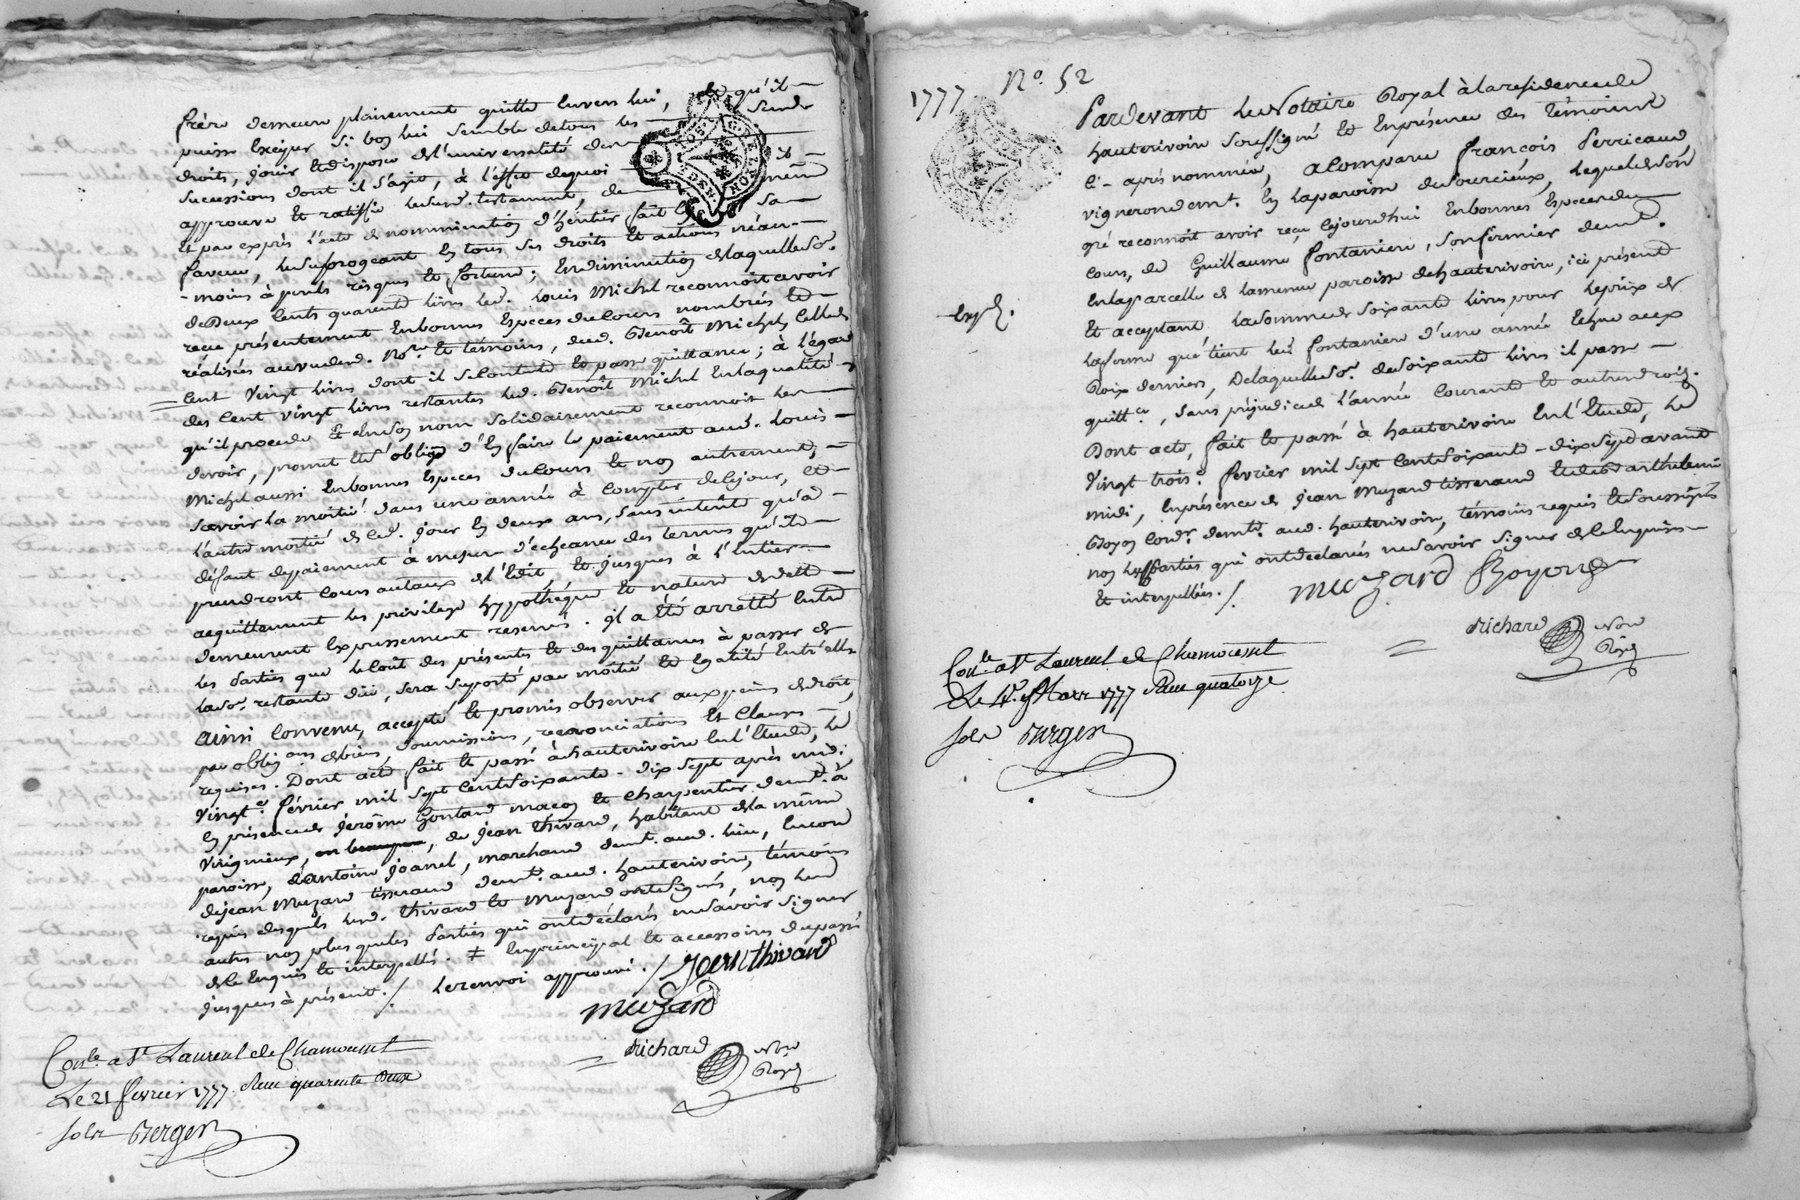 frère demeure plainement quitte envers lui, et qu'il
puisse exiger si bon lui semble de tous les
droits, jouir et disposer de l'universalité de
successions dont il s'agit, à l'effet de quoi il
approuve et ratiffie led. testament, de même
et par exprès l'acte de nomminnation d'héritier fait en sa
faveur, le subrogeant en tous ses droits et actions néan-
-moins à perils risques et fortune; En diminution de laquelle so.e
de deux cents quarente livres led. Louis Michel reconnoit avoir
reçu présentement en bonnes Especes du cours nombrés et
réalisées au vu dud. No.re et témoins, dud. Benoît Michel, celle de
cent vingt livres dont il se contente et passe quittance; à l'égard
des cent vingt livres restantes led. Benoît Michel en la qualité
qu'il procede et en son nom solidairement reconnoit les
devoir, promet et s'oblige d'en faire le paiement aud. Louis
Michel aussi en bonnes Especes du cours et non autrement,
sçavoir la moitié dans une année à compter de ce jour, et
l'autre moitié de ced. jour en deux ans, sans intérêt qu'à
défaut de paiement à mesure d'echeance des termes qu'ils
prendront cours au taux de l'Edit et jusques à l'entier
acquittement les privilege hyppothéque et nature de dette
demeurent Expressement reservés. il a Eté arretté entre
les parties que le coût des présentes et des quittances à passer de
la so.e restante dûe, sera suporté par moitié et egalité entr'elles
ainsi convenu, accepté et promis observer aux peines de droit,
par oblig.ons de biens, soumissions, renonciations et clauses
requises. Dont acte fait et passé à hauterivoire en l'Etude, le
vingt.e février mil sept cent soixante-dix sept après midi
En présence de jerôme Gontard maçon et charpentier demt. à
Virignieux, de jean thivard, habitant de la même
paroisse, d'antoine joannel, marchand demt. aud. lieu, encore
de jean Muzard tisserand demt. aud. hauterivoire, témoins
requis desquels led. thivard et Muzard ont signés, non les
autres non plus que les parties qui ont déclarés ne savoir signer
de ce Enquis et interpellés. ‡ En principal et accessoires du passé
jusques à présent ./. le renvoi approuvé ./. Jean thivard
muzard
Richard No.re Royal
Con.lé a St. Laurent de Chamousset
Le 21 fevrier 1777 Reçu quarente deux
sols Berger
1777 N.o 52
Pardevant le Notaire Royal à la residence de
hauterivoire soussigné et en présence des témoins
ci-aprés nommés, a Comparu françois Perricaud
vigneron demt. En la paroisse de sourcieux, lequel de son
gré reconnoit avoir reçu cejourd'hui En bonnes Especes du
cours, de Guillaume fontaniere, son fermier demt.
En la parcelle de la même paroisse de hauterivoire, ici présent
Et acceptant la somme de soixante livres pour le prix de
la ferme que tient led. fontaniere d'une année Echue aux
Rois derniers, De laquelle so.e de soixante livres il passe
quitt.ce, sans préjudice de l'année courante et autres droits.
Dont acte, fait et passé à hauterivoire En l'Etude, le
Vingt trois.e fevrier mil sept cent soixante-dix sept avant
midi, En présence de jean Muzard tisserand Et de Barthelemi
Boyon cord.r demt. aud. hauterivoire, témoins requis et soussignés
non les parties qui ont declarés ne savoir signer de ce Enquises
Et interpellées ./.
muzard Boyond
Richard No.re Royal
Exp.é
Con.lé a St. Laurent de Chamousset
Le 4.e Mars 1777 Reçu quatorze
sols Berger